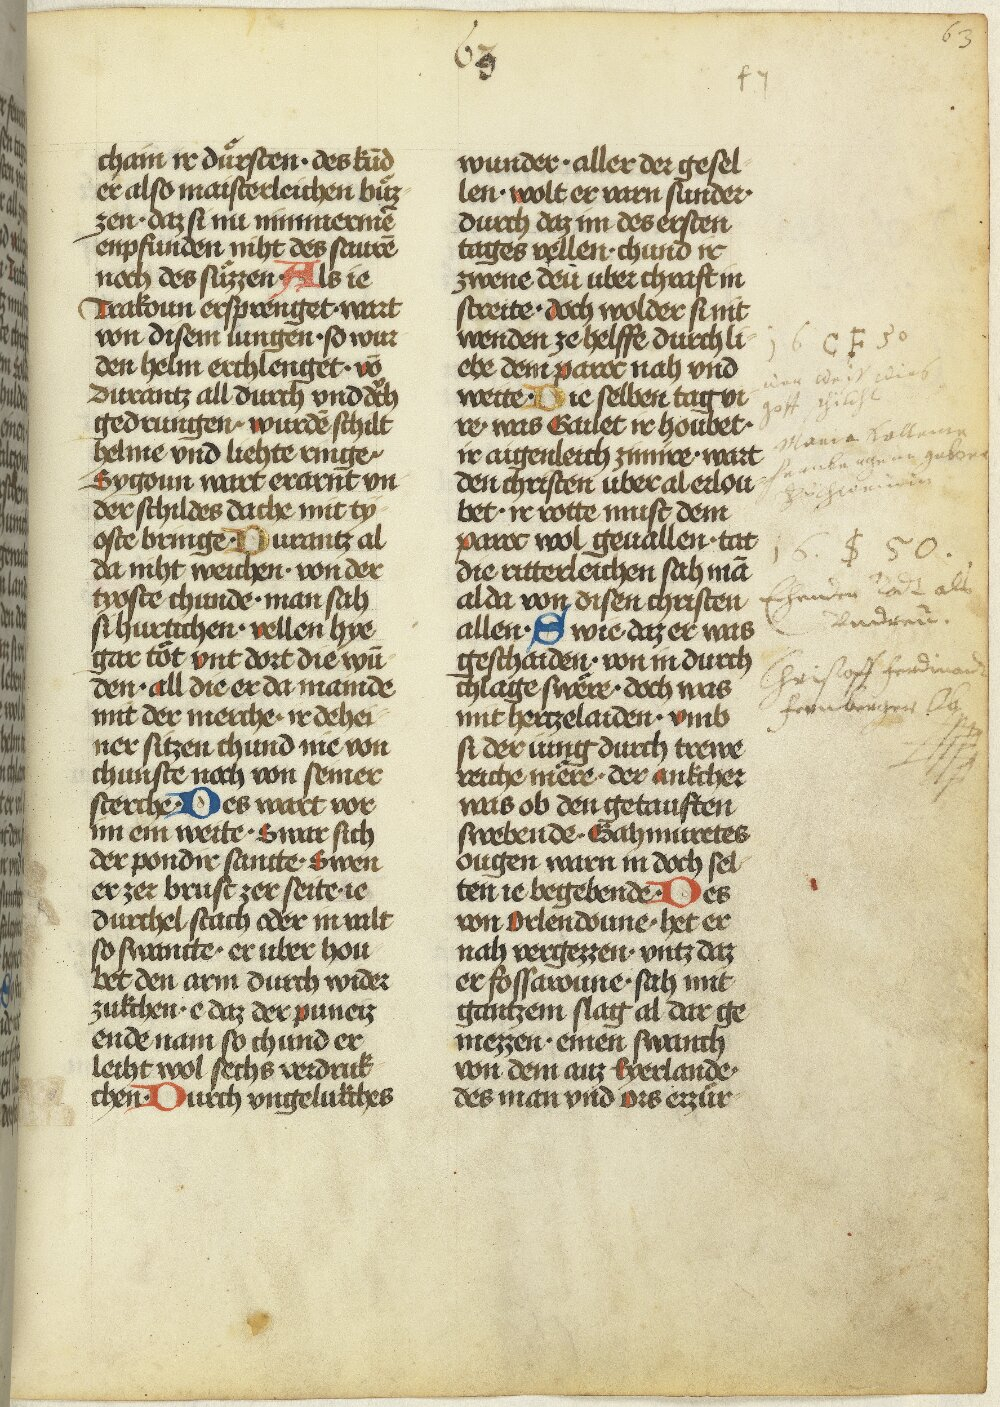 63
63
f 7
cham ir dúrsten · des kūd
er also maisterleichen búz
zen · daz si nu nimmermē
enpfunden niht des saurē
noch des súzzen · Als ie
Trakoun ersprenget · wart
von disem iungen · so wur
den helm erchlenget · vō
Durantz all durch vnd dᵉch
gedrungen · wurdē schilt
helme vnd liehte ringe ·
Sygoun wart erarnt vn
der schildes dache mit ty
oste bringe · Durantz al
da niht weichen · von der
tyoste chunde · man sah
si hurtichen · vellen hye
gar tot vnt dort die wū
den · all die er da mainde
mit der merche · ir dehei
ner sitzen chund nie von
chunste noch von seiner
sterche · Des wart vor
im ein weite · Swar sich
der pondir sancte · Swen
er zer brust zer seite · ie
durchel stach oder in vilt
so swancte · er uber hou
bet den arm durch wider
zukchen · e daz der puneiz
ende nam so chund er
leiht wol sechs verdruk
chen · Durch vngelukches
wunder · aller der gesel
len · wolt er varn sunder ·
durch daz im des ersten
tages vellen · chund ir
zwene den uber chraft in
streite · doch wolder si nit
wenden ze helffe durch li
ebe dem paroc nah vnd
weite · Die selben tag vi
re · was Gailet ir houbet ·
ir augenleich zimire · wart
den christen uber al erlou
bet · ir rotte must dem
paroc wol geuallen · tat
die ritterleichen sah mā
alda von disen christen
allen · Swie daz er was
geschaiden · von in durch
chlage swere · doch was
mit hertzelaiden · vmb
si der iung durch trewe
reiche mere · der ankcher
was ob den getauften
swebende · Gahmuretes
ougen warn in doch sel
ten ie begebende · Des
von Orlendoune · het er
nah vergezzen · vntz daz
er fossaroune · sah mit
gantzem slag al dar ge
mezzen · einen swanch
von dem auz Eyerlande ·
des man vnd ors erzúr
16 C F 50
gott
Maria
16 . $ 50 .
als
Christoff Ferdinandt
Fernberger